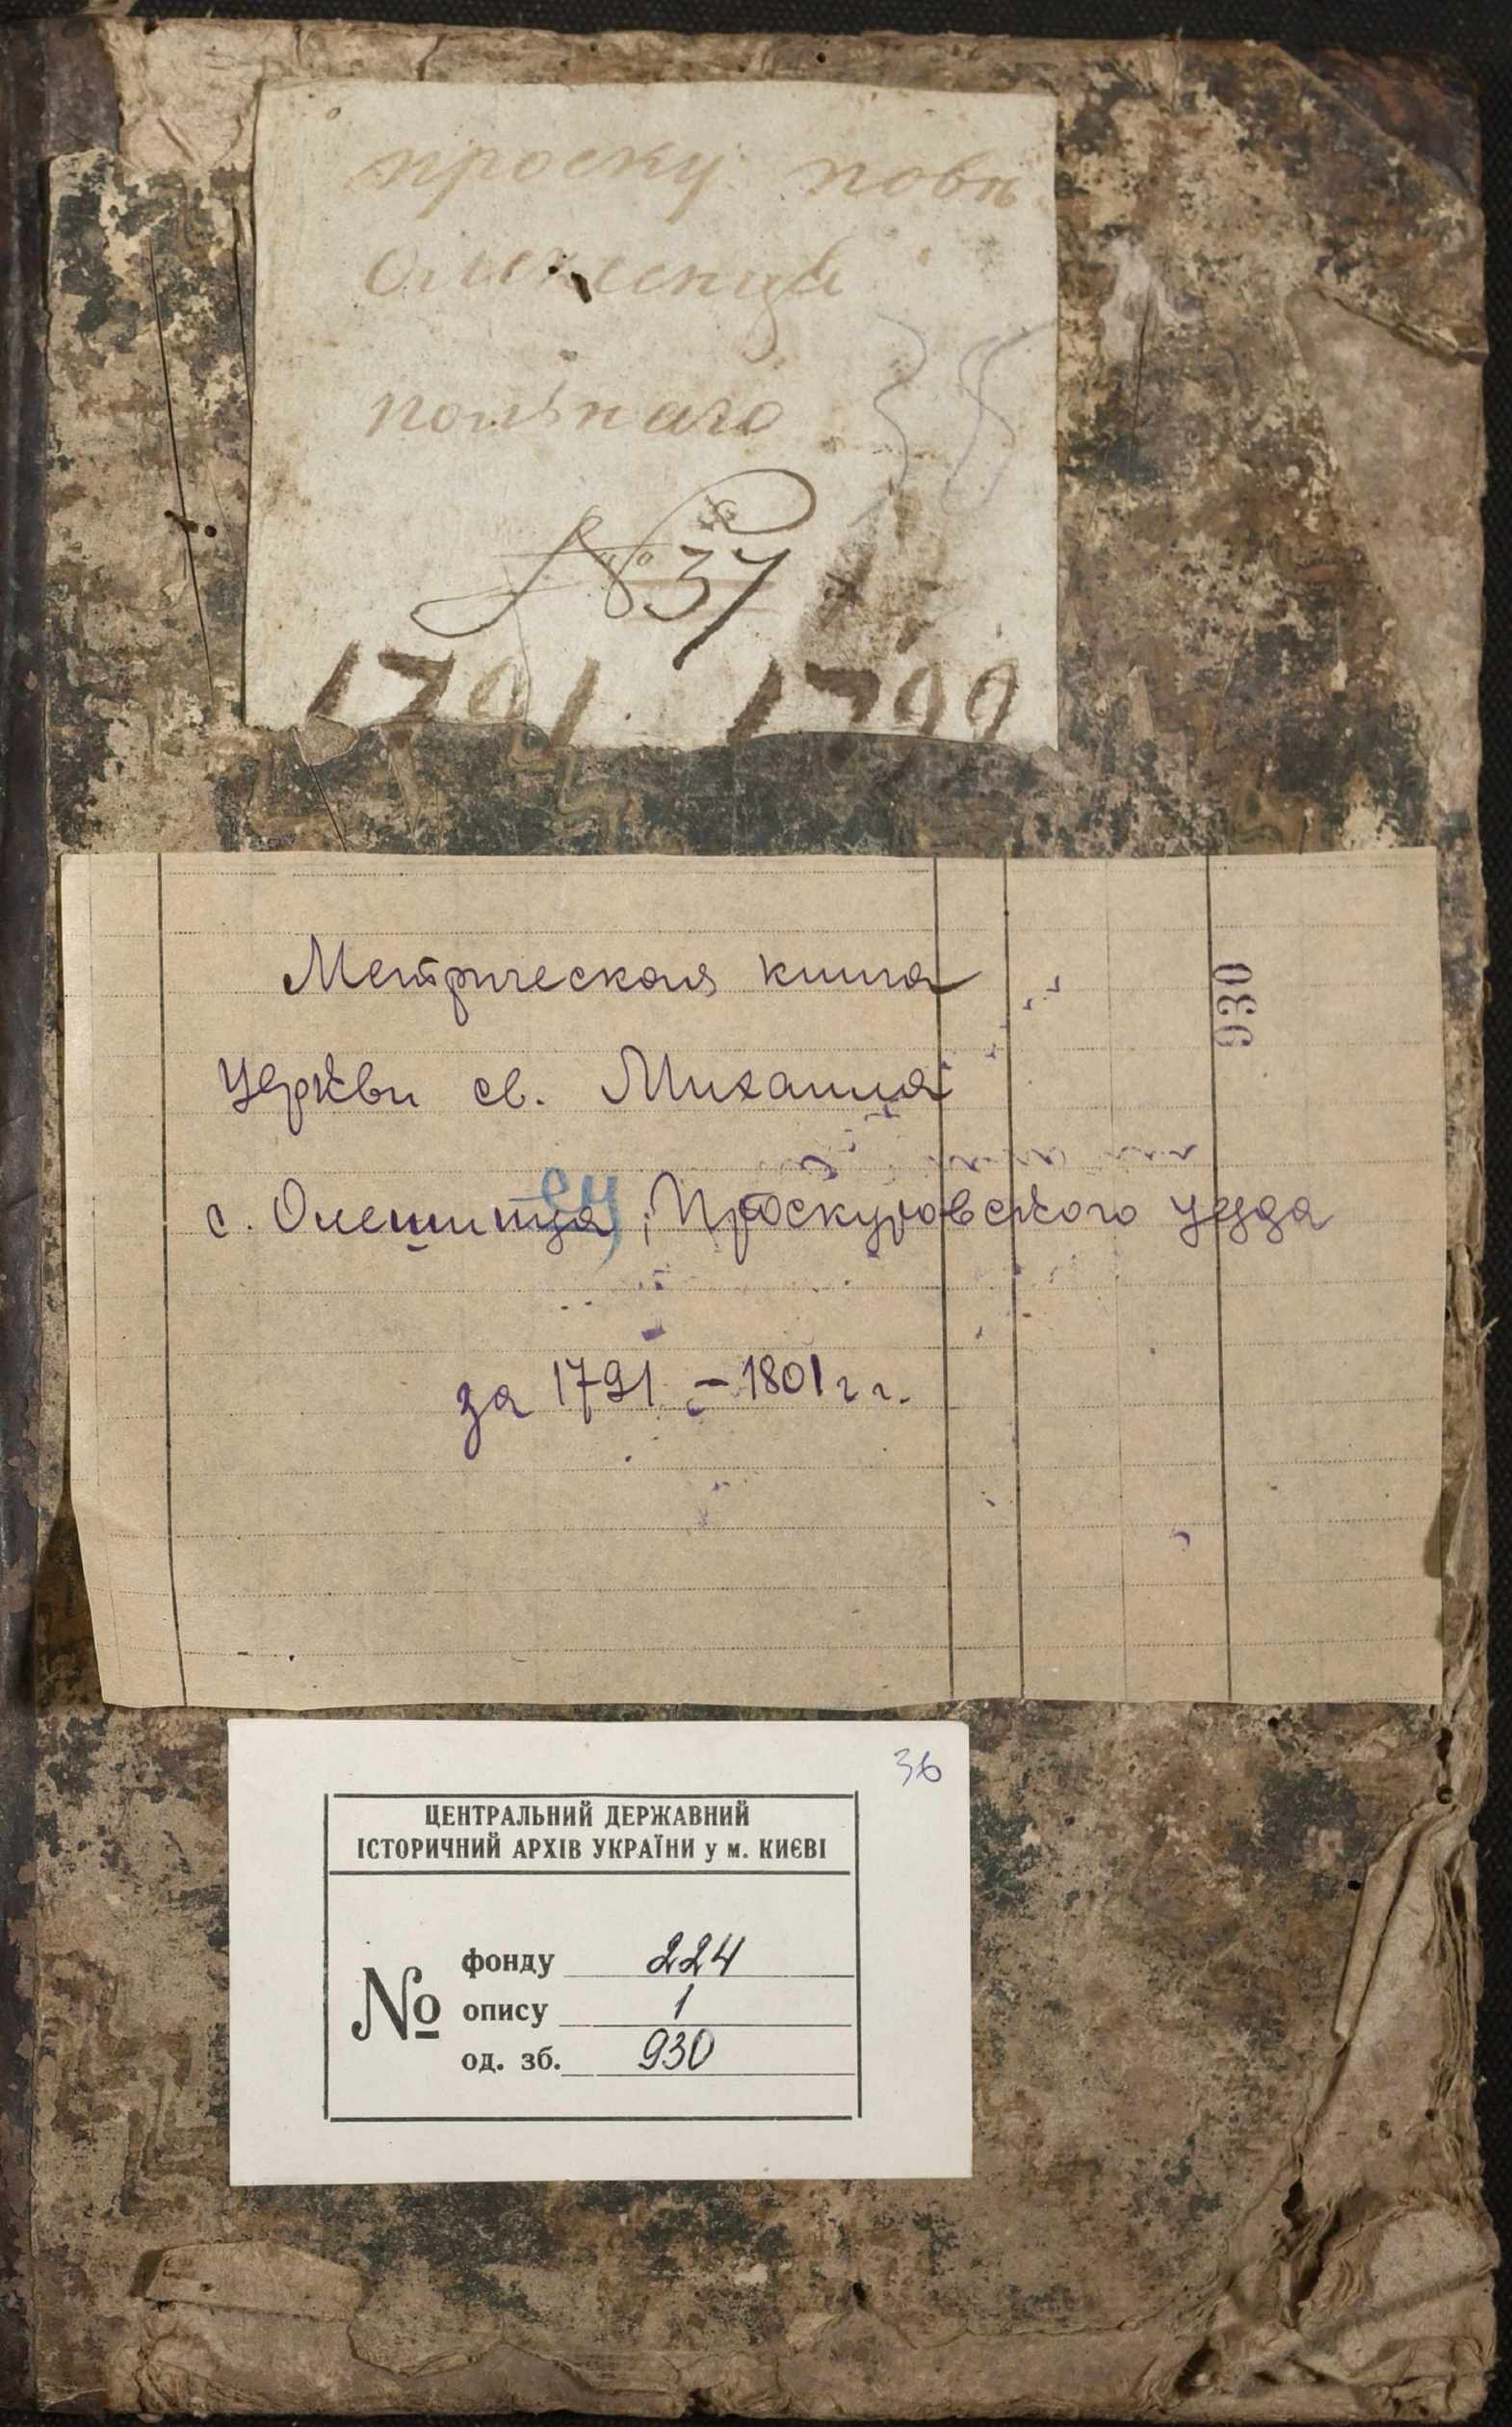 проску: повѣ
польнаго
№ 37
1791 1799
Метрическая книга
церкви св. Михаила
с. Олешинца, Проскуровского уезда
за 1791 - 1801 г г.
930
36
ЦЕНТРАЛЬНИЙ ДЕРЖАВНИЙ
ІСТОРИЧНИЙ АРХІВ УКРАЇНИ у м. КИЄВІ
№
фонду 224
опису 1
од. зб. 930